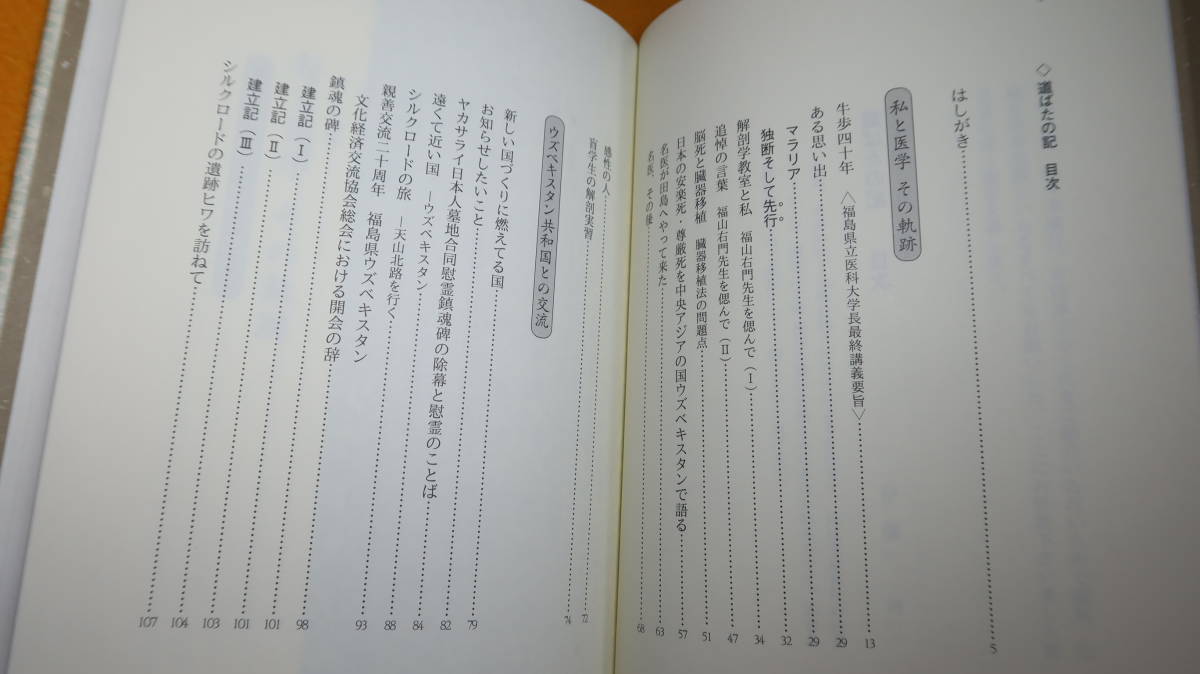 ◇ 道ばたの記　目次
はしがき……5
私と医学 その軌跡
牛歩四十年　〈福島県立医科大学長最終講義要旨〉……13
ある思い出……29
マラリア……29
独断そして先行……32
解剖学教室と私　福山右門先生を偲んで（Ⅰ）……34
追悼の言葉　福山右門先生を偲んで（Ⅱ）……47
脳死と臓器移植　臓器移植法の問題点……51
日本の安楽死・尊厳死を中央アジアの国ウズベキスタンで語る……57
名医が田島へやって来た……63
名医、その後……68
感性の人……72
盲学生の解剖実習……74
ウズベキスタン共和国との交流
新しい国づくりに燃えてる国……79
お知らせしたいこと……82
ヤカサライ日本人墓地合同慰霊鎮魂碑の除幕と慰霊のことば……84
遠くて近い国　―ウズベキスタン……88
シルクロードの旅　―天山北路を行く……93
親善交流二十周年　福島県ウズベキスタン
文化経済交流協会総会における開会の辞……98
鎮魂の碑……101
建立記（Ⅰ）……101
建立記（Ⅱ）……103
建立記（Ⅲ）……104
シルクロードの遺跡ヒワを訪ねて……107